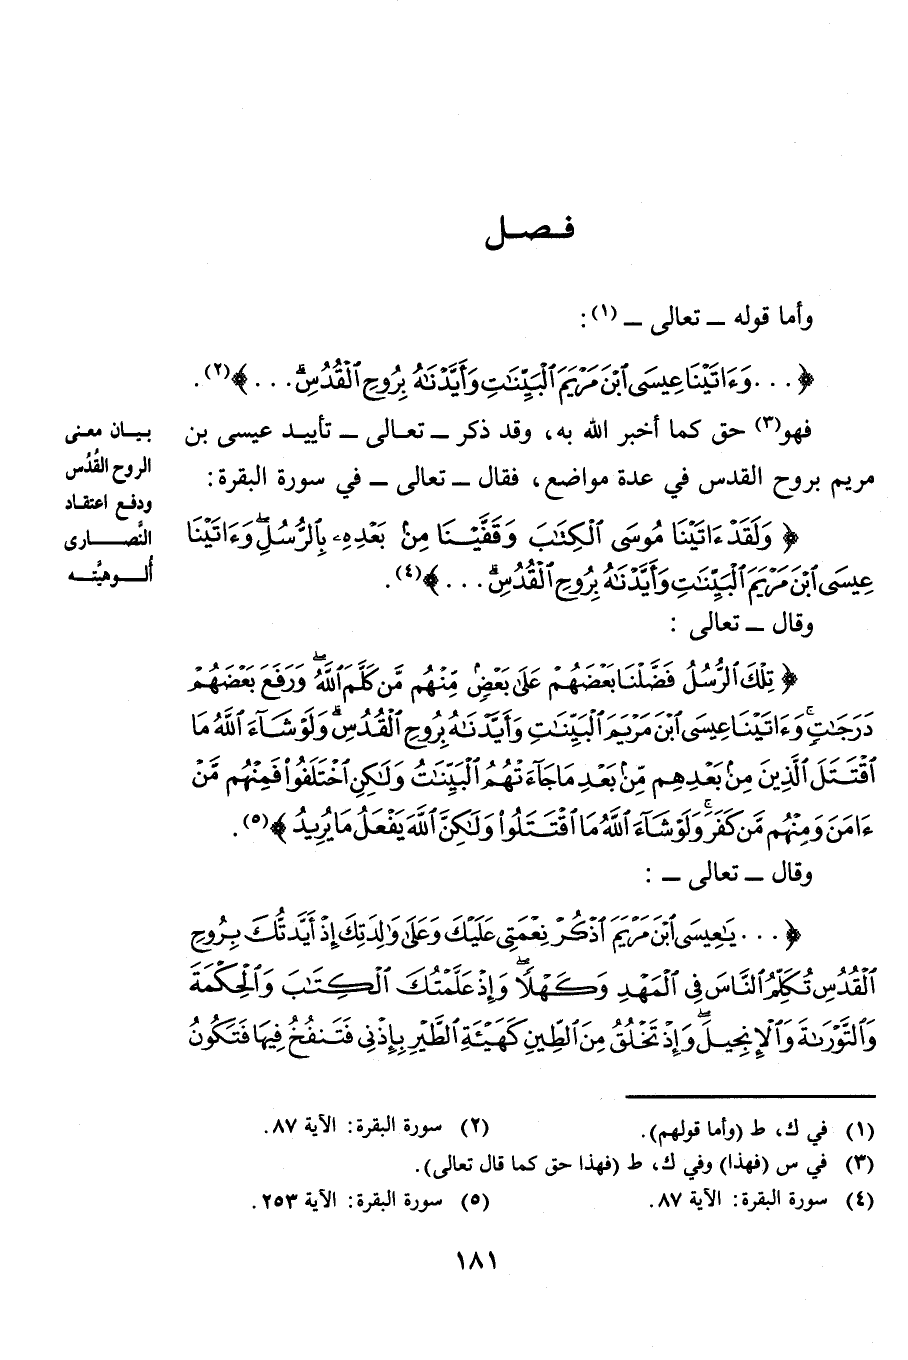 فـصـل
وأما قوله ــ تعالى ــ (١):
﴿ . . . وَءَاتَيْنَا عِيسَى ٱبْنَ مَرْيَمَ ٱلْبَيِّنَٰتِ وَأَيَّدْنَٰهُ بِرُوحِ ٱلْقُدُسِۗ . . . ﴾(٢).
فهو(٣) حق كما أخبر الله به، وقد ذكر ــ تعـالى ــ تأييد عيسى بن
مريم بروح القدس في عدة مواضع، فقال ــ تعالى ــ في سورة البقرة:
بيـان معنى
الروح القُدُس
ودفـع اعتقـاد
النَّصـــــارى
أُلــوهيَّتــه
﴿ وَلَقَدْ ءَاتَيْنَا مُوسَى ٱلْكِتَٰبَ وَقَفَّيْنَا مِنۢ بَعْدِهِۦ بِٱلرُّسُلِۖ وَءَاتَيْنَا
عِيسَى ٱبْنَ مَرْيَمَ ٱلْبَيِّنَٰتِ وَأَيَّدْنَٰهُ بِرُوحِ ٱلْقُدُسِۗ . . . ﴾(٤).
وقال ــ تعالى :
﴿ تِلْكَ ٱلرُّسُلُ فَضَّلْنَا بَعْضَهُمْ عَلَىٰ بَعْضٍۘ مِّنْهُم مَّن كَلَّمَ ٱللَّهُۖ وَرَفَعَ بَعْضَهُمْ
دَرَجَٰتٍۚ وَءَاتَيْنَا عِيسَى ٱبْنَ مَرْيَمَ ٱلْبَيِّنَٰتِ وَأَيَّدْنَٰهُ بِرُوحِ ٱلْقُدُسِۗ وَلَوْ شَآءَ ٱللَّهُ مَا
ٱقْتَتَلَ ٱلَّذِينَ مِنۢ بَعْدِهِم مِّنۢ بَعْدِ مَا جَآءَتْهُمُ ٱلْبَيِّنَٰتُ وَلَٰكِنِ ٱخْتَلَفُوا۟ فَمِنْهُم مَّنْ
ءَامَنَ وَمِنْهُم مَّن كَفَرَۚ وَلَوْ شَآءَ ٱللَّهُ مَا ٱقْتَتَلُوا۟ وَلَٰكِنَّ ٱللَّهَ يَفْعَلُ مَا يُرِيدُ ﴾(٥).
وقال ــ تعالى ــ :
﴿ . . . يَٰعِيسَى ٱبْنَ مَرْيَمَ ٱذْكُرْ نِعْمَتِى عَلَيْكَ وَعَلَىٰ وَٰلِدَتِكَ إِذْ أَيَّدتُّكَ بِرُوحِ
ٱلْقُدُسِ تُكَلِّمُ ٱلنَّاسَ فِى ٱلْمَهْدِ وَكَهْلًاۖ وَإِذْ عَلَّمْتُكَ ٱلْكِتَٰبَ وَٱلْحِكْمَةَ
وَٱلتَّوْرَىٰةَ وَٱلْإِنجِيلَۖ وَإِذْ تَخْلُقُ مِنَ ٱلطِّينِ كَهَيْـَٔةِ ٱلطَّيْرِ بِإِذْنِى فَتَنفُخُ فِيهَا فَتَكُونُ
(١) في ك، ط (وأما قولهم). (٢) سورة البقرة: الآية ٨٧.
(٣) في س (فهذا) وفي ك، ط (فهذا حق كما قال تعالى).
(٤) سورة البقرة: الآية ٨٧. (٥) سورة البقرة: الآية ٢٥٣.
١٨١